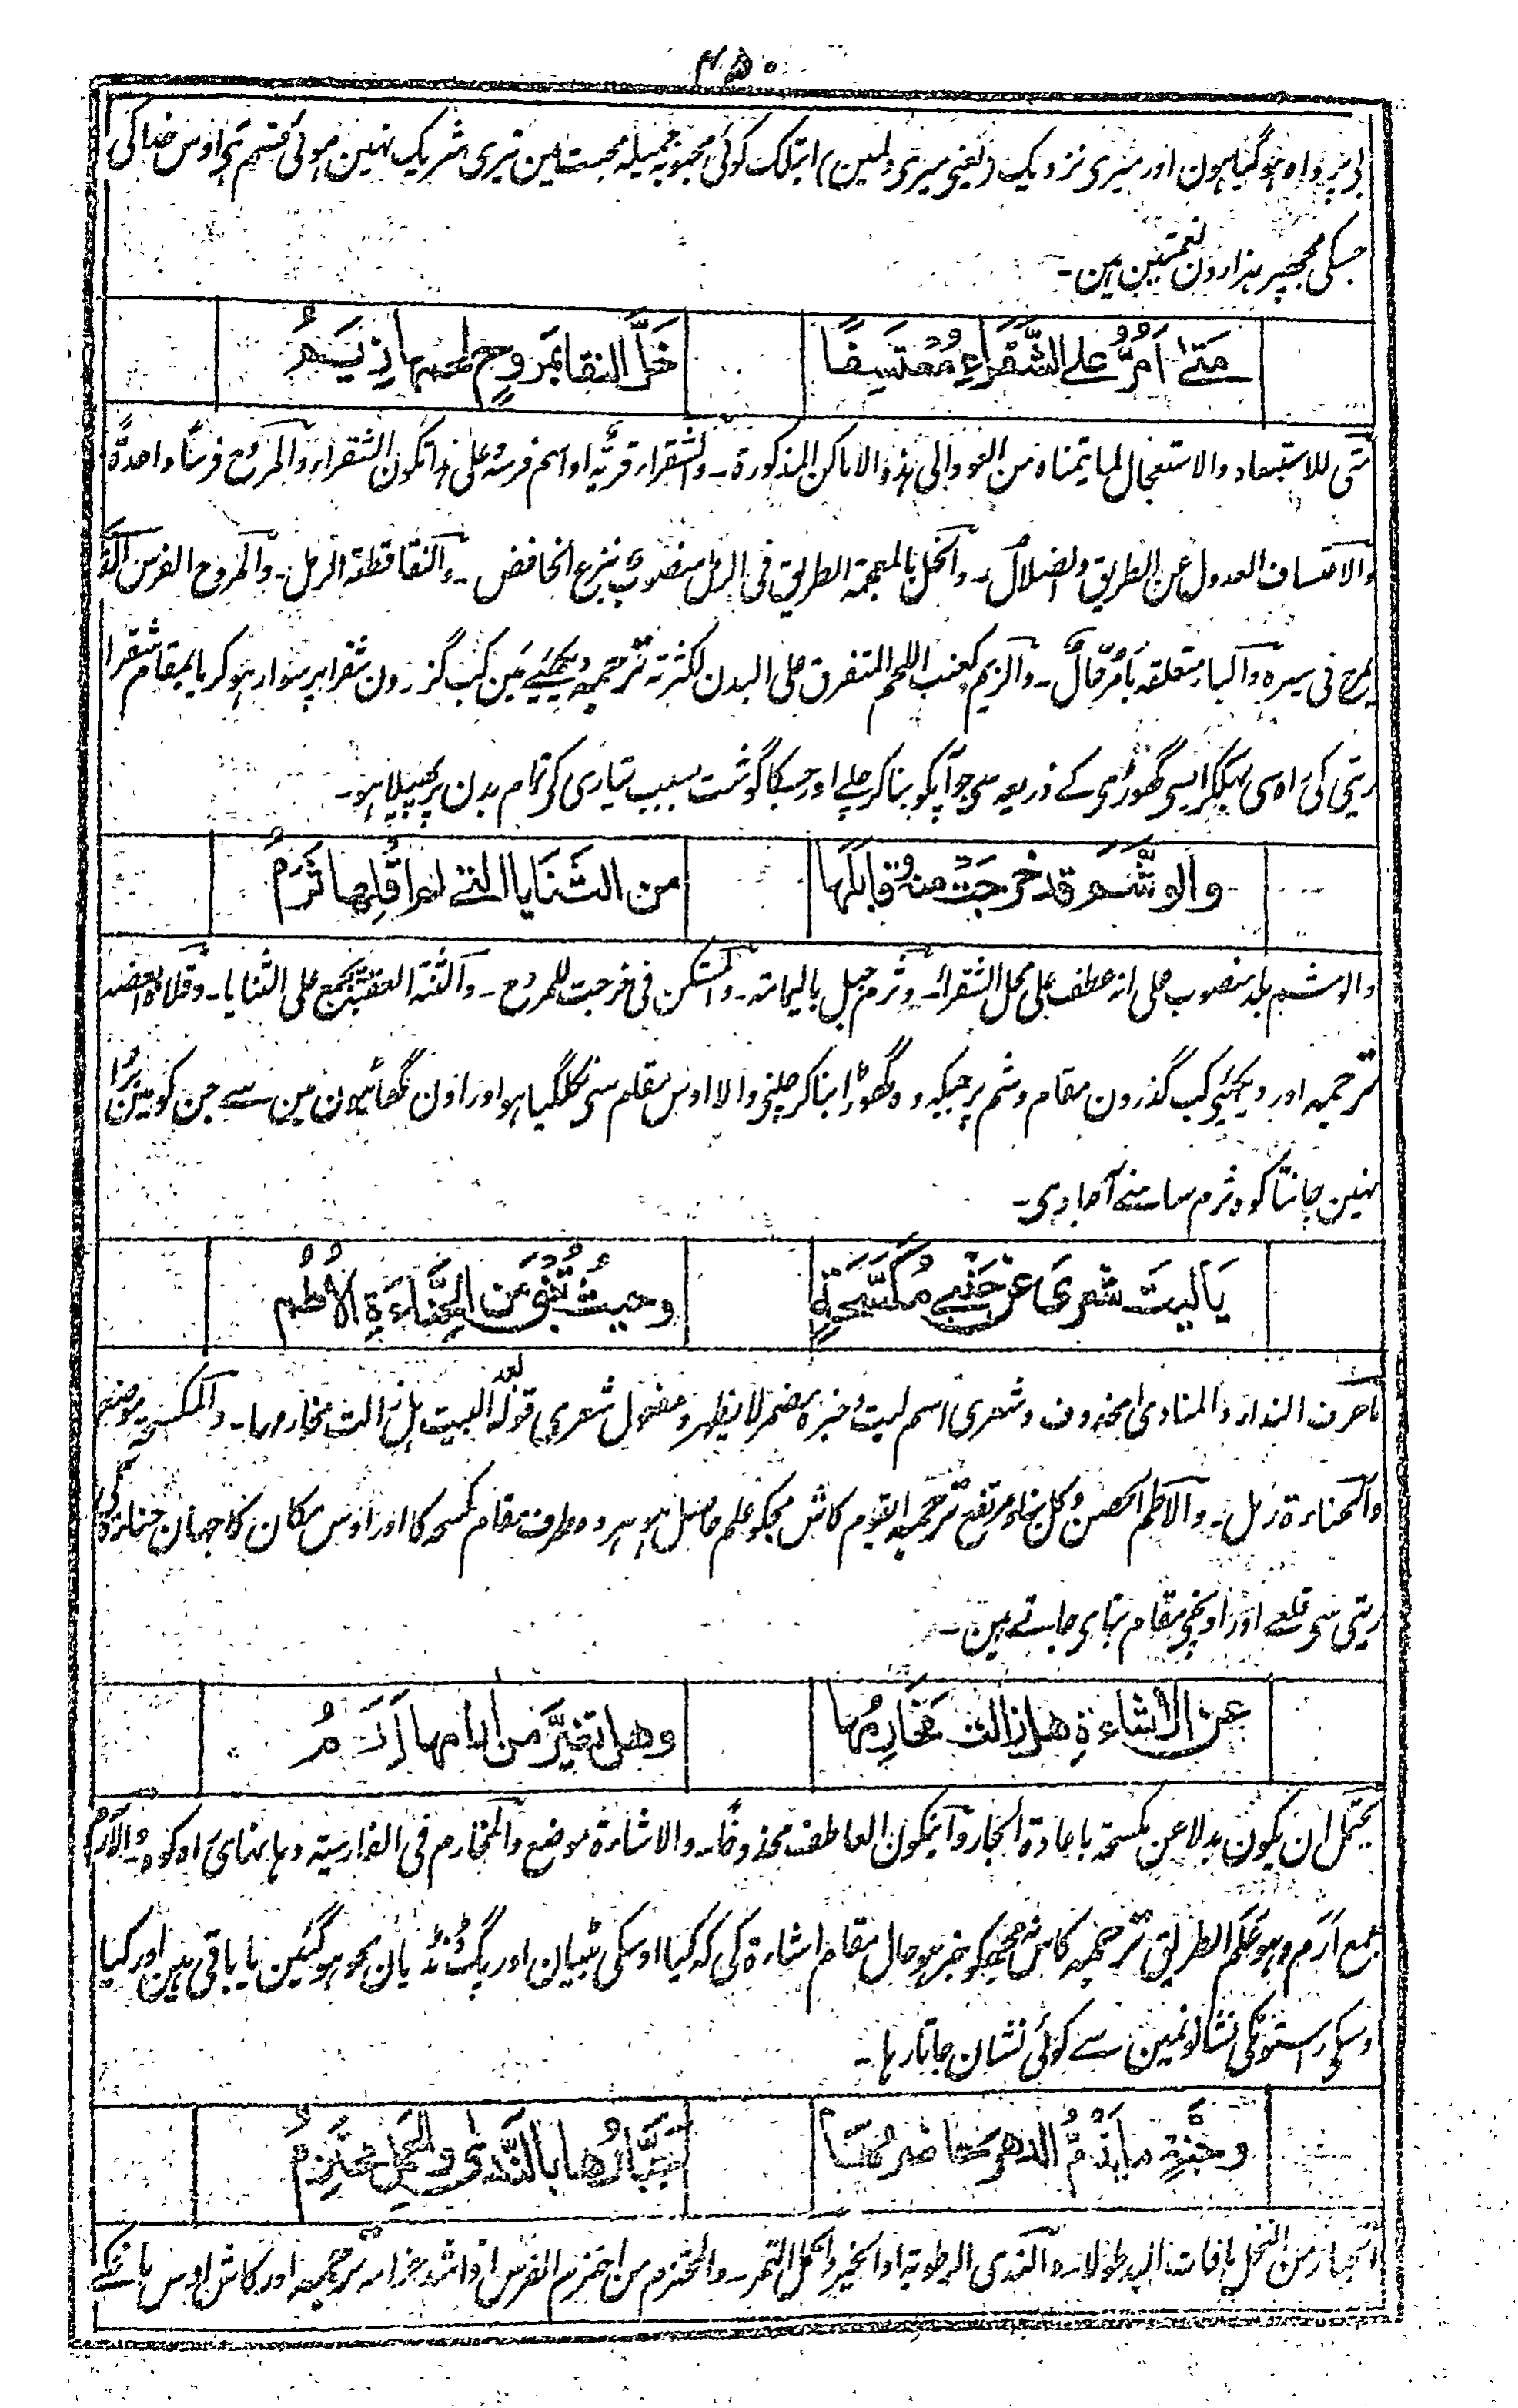 ۴۵۰
بی پرواہ ہوگیا ہون اور میری نزدیک (یعنی میری دلمین) ابتلک کوئی محبوبہ جمیلہ محبت مین تیری شریک نہین ہوئی قسم ہی اوس خدا کی
جسکی مجھپر ہزارون نعمتین ہین۔
مَتٰے اَمُرُّ علے الشَّقْرَاءِ مُعْتَسِفًا خَلَّ النقا بمَروحٍ لحمها زِيَمُ
متی للاستبعاد والاستعجال لما یتمناہ من العود الی ہذہ الاماکن المذکورة۔ والشقراء قریة او اسم فرسہ وعلی ہذا تکون الشقراء والمروح فرسًا واحدةً
والاعتساف العدول عن الطریق والضلال۔ والخل بالمعجمة الطریق فی الرمل منصوب بنزع الخافض۔ والنقا قطعة الرمل۔ والمروح الفرس الذی
یمرح فی سیرہ والباء متعلقة بامر حال۔ والزیم کعنب اللحم المتفرق علی البدن لکثرتہ ترجمہ دیکھئے مین کب گزرون شقرا پر سوار ہوکر یا بمقام شقرا
ریتی کی راہ سی بہککر ایسی گھوڑی کے ذریعہ سی جو آپکو بنا کر چلے اور جسکا گوشت بسبب تیاری کی تمام بدن پر پھیلا ہو۔
والوشْمَ قد خرجَتْ منهُ قابلَها من الثَنَايا التے لم اَقلِها ثَرَمُ
والوشم بلد منصوب علی انہ عطف علی محل الشقراء۔ وثرم جبل بالیمامة۔ والمستکن فی خرجت للمروح۔ والثنیة العقبة تجمع علی الثنایا۔ وقلاہ ابغضہ
ترجمہ اور دیکھئی کب گذرون مقام وشم پر جبکہ وہ گھوڑا بنا کر چلنی والا اوس مقام سی نکلگیا ہو اور اون گھاٹیون مین سے جن کو مین برا
نہین جانتا کوہ ثرم سامنے آجاوی۔
يَا ليتَ شعرىَ عن جَنْبَے مُكَشَّحَةٍ وحيثُ تُبْنٰى مَن الحِنَّاءَةِ الاُطُم
یا حرف النداء والمنادی محذوف وشعری اسم لیت وخبرہ مضمر لا یظہر ومفعول شعری قولہ البیت ہل زالت مخارمہا۔ والمکشحة موضع
والحناءة رمل۔ والاطم الحصن وکل بناء مرتفع ترجمہ ای قوم کاش مجکو علم حاصل ہو ہر دو طرف مقام مکشحہ کا اور اوس مکان کا جہان حناءة کی
ریتی سی قلعے اور اونچی مقام بنای جاتے ہین۔
عن الاُشاءةِ هل زالت مَخَارِمُها وهل تغيَّرَ من اٰرامها اِرَمُ
یحتمل ان یکون بدلا عن مکشحة باعادة الجار وان یکون العاطف محذوفًا۔ والاشاءة موضع والمخارم فی الفارسیة دہانہای راہ کوہ والآرام
جمع ارم وہو علم الطریق ترجمہ کاش مجھکو خبر ہو حال مقام اشاءة کی کہ کیا اوسکی بٹیان اور پگ ڈنڈیان محو ہوگئین یا باقی ہین اور کیا
اوسکی رستونکی نشانونمین سے کوئی نشان جاتا رہا۔
وجَنَّةٍ ما يَذُمُّ الدهرَ حاضرُها جَبَّارُها بالنَّدىٰ والحَمْلِ مُحتزِمُ
الجبار من النخل ما فات الید طولا۔ والندی الرطوبة او الخیر والحمل الثمر۔ والمحتزم من احتزم الفرس اذا شد حزامہ ترجمہ اور کاش اوس باغکے